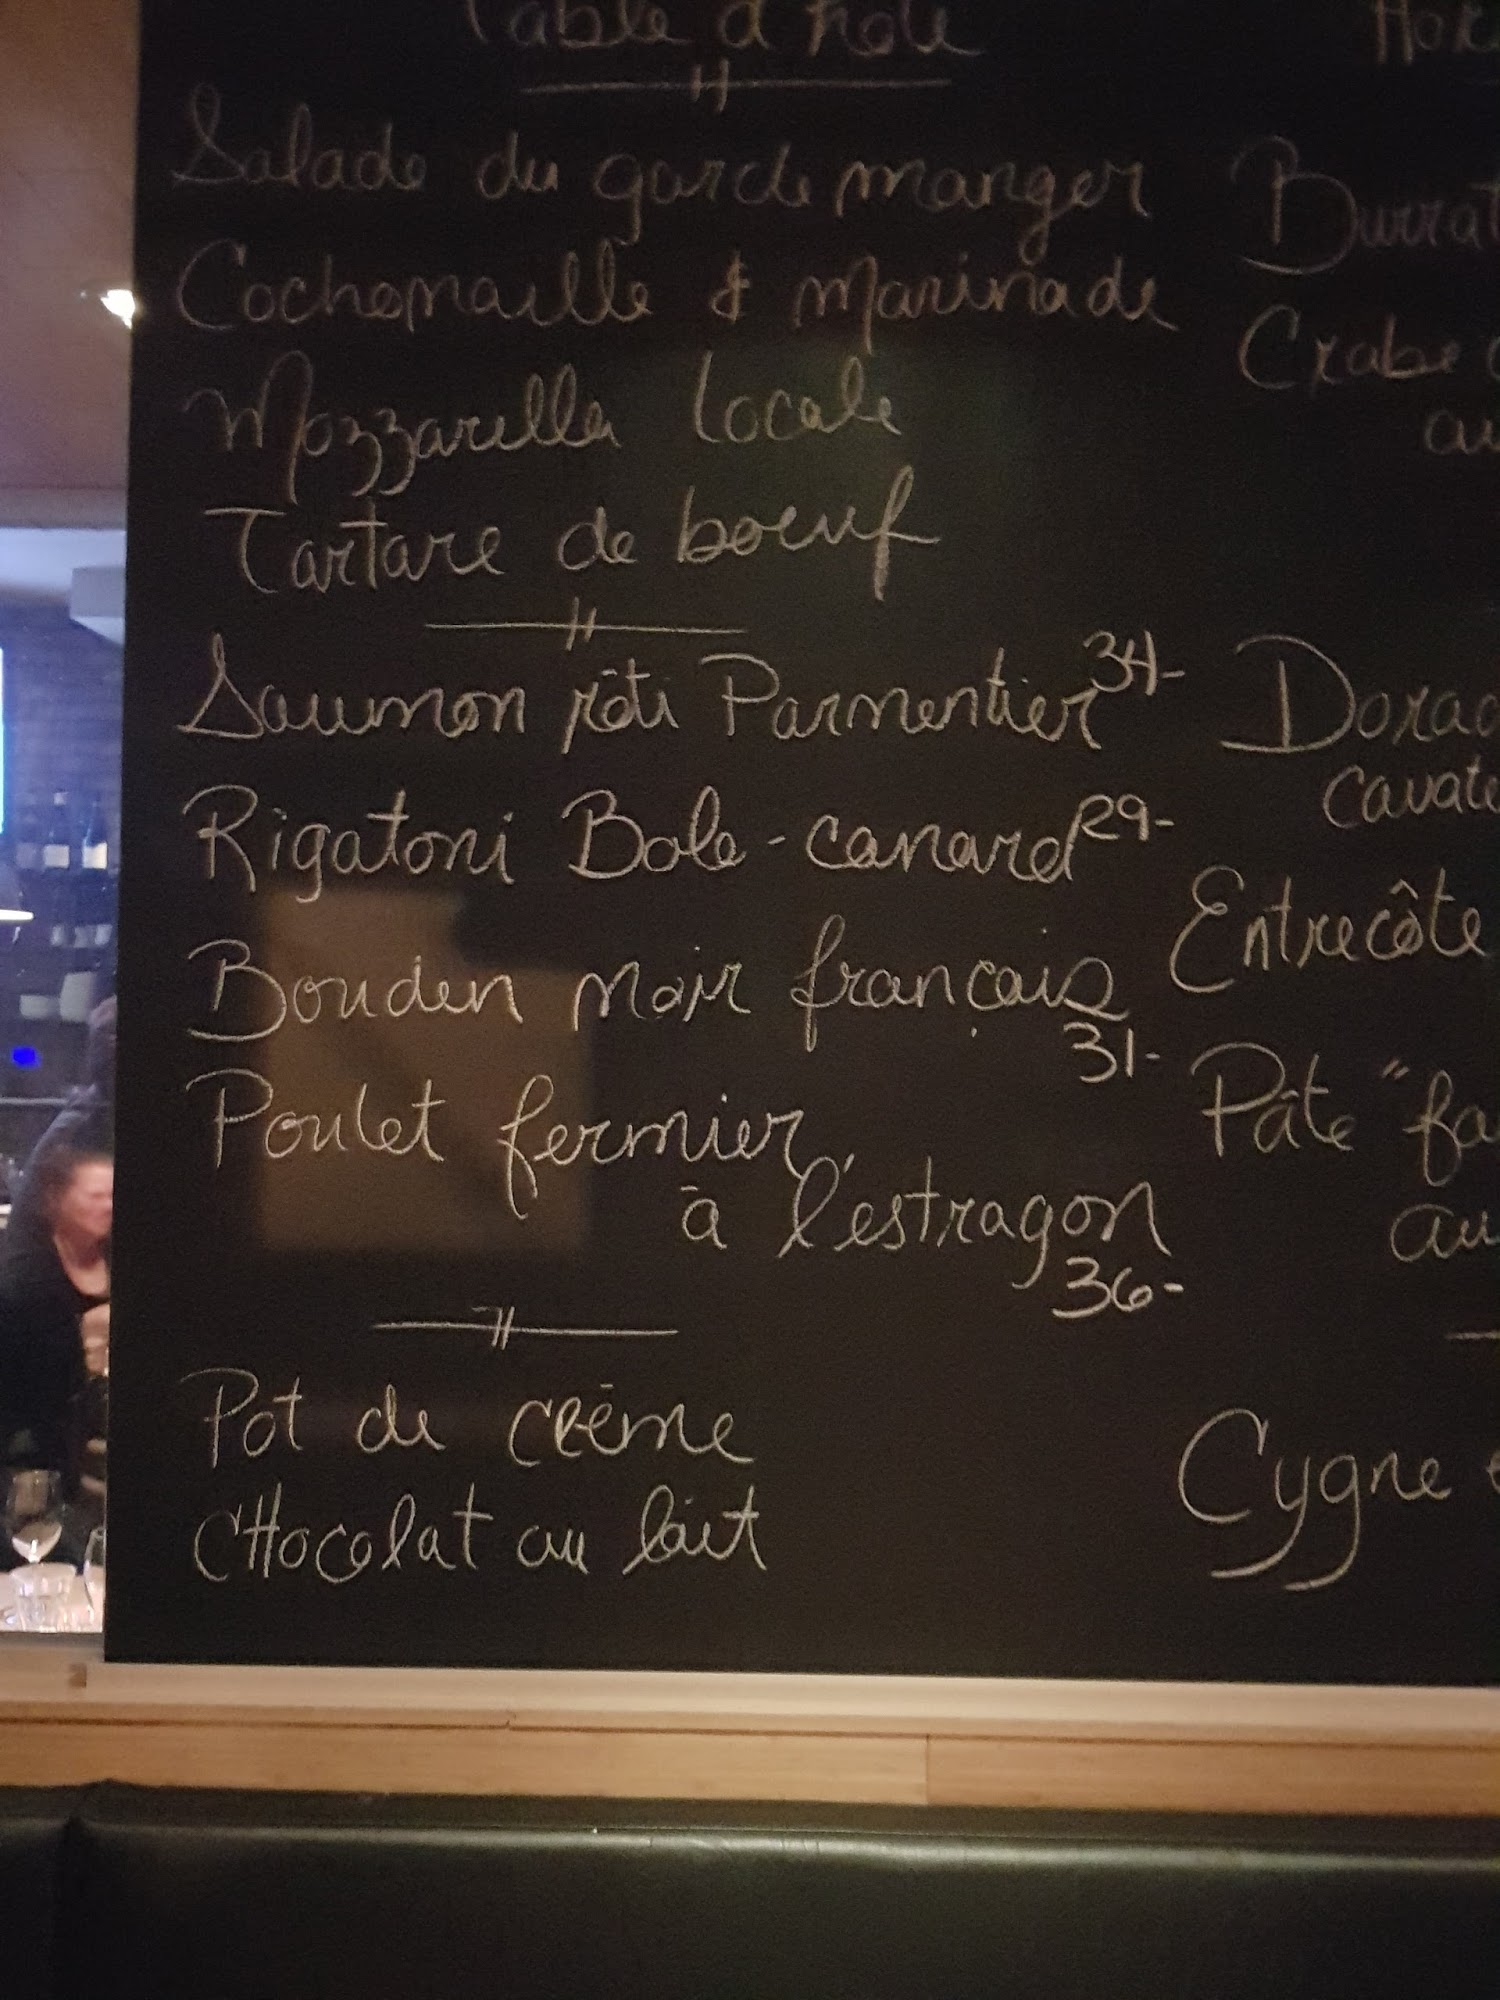 Table d'hôte
Salade du garde manger
Cochonaille & marinade
Mozzarella locale
Tartare de boeuf
Saumon rôti Parmentier 34-
Rigatoni Bolo-canard 29-
Boudin noir français
31-
Poulet fermier,
à l'estragon
36-
Pot de crème
CHocolat au lait
Crabe
au
Cavate
Entrecôte
Pâte "fa
au
Cygne